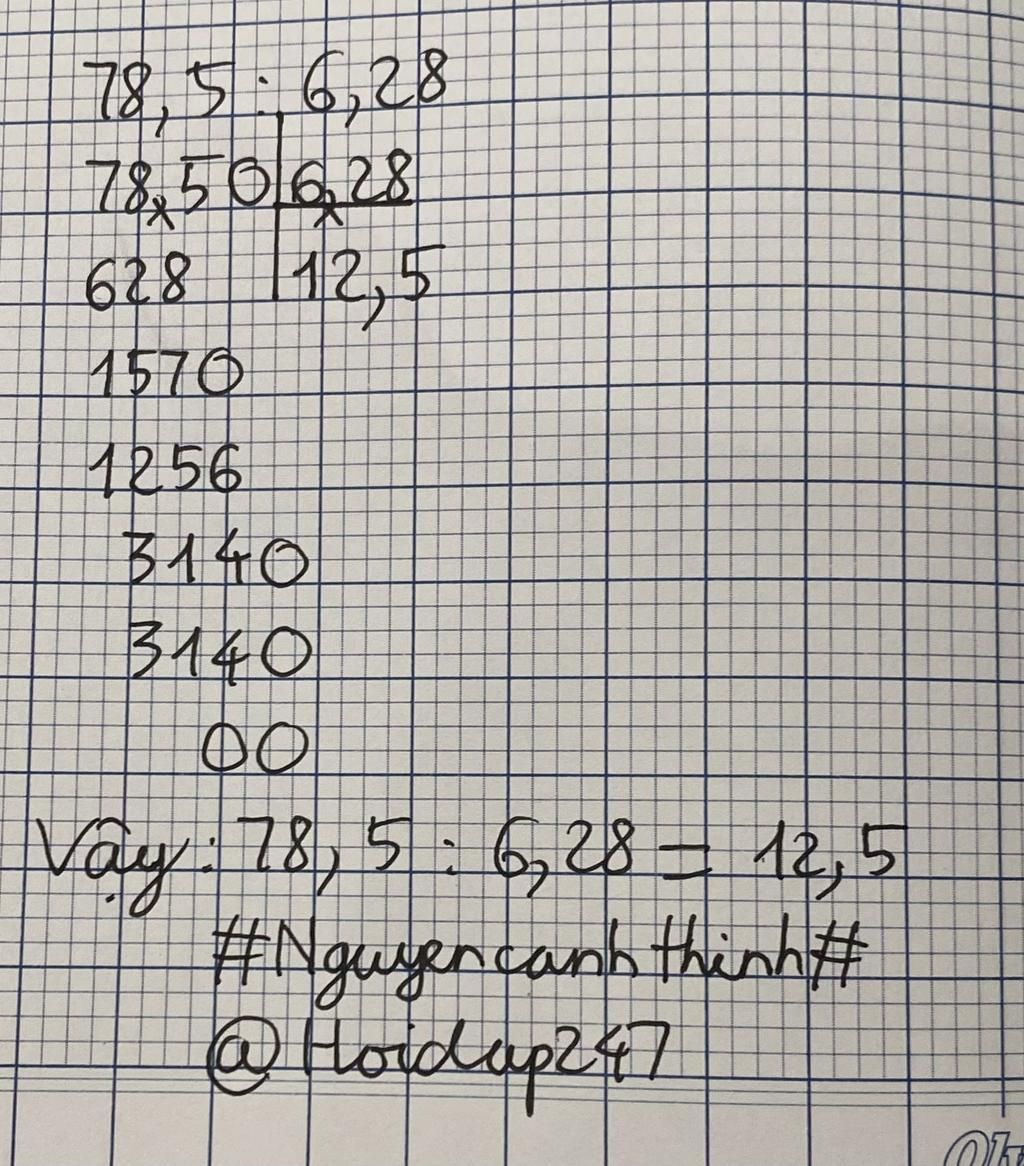 78,5 : 6,28
78,50 6,28
628 12,5
1570
1256
3140
3140
00
Vậy: 78,5 : 6,28 = 12,5
#Nguyencanhthinh#
@Hoidap247